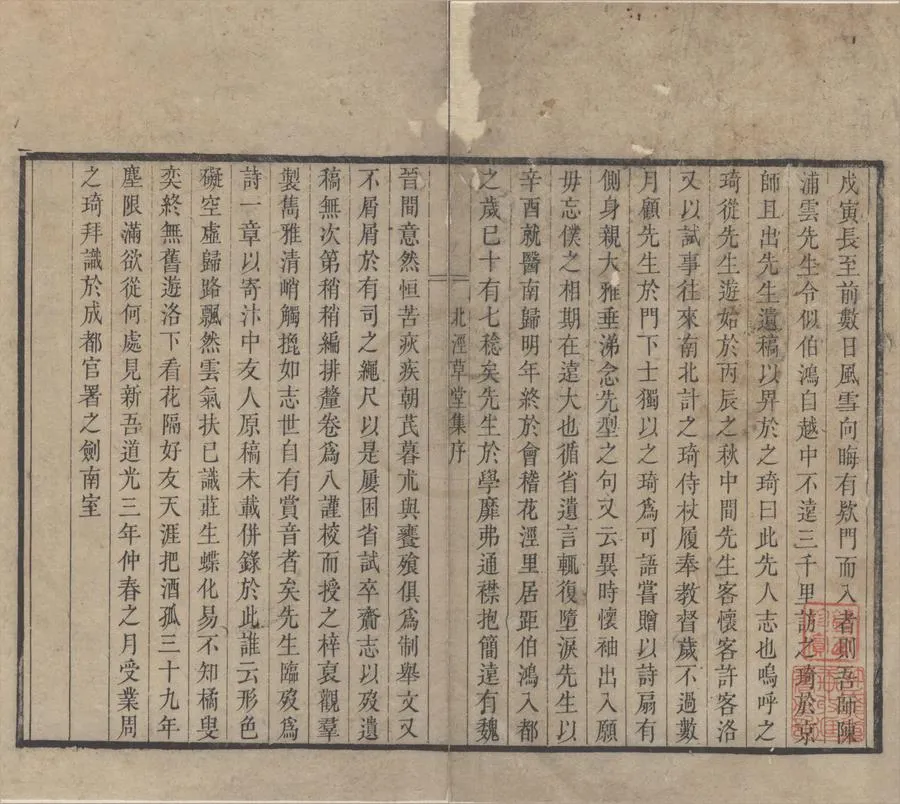 戊寅長至前數日風雪向晦有欵門而入者則吾師陳
浦雲先生令似伯鴻自越中不遠三千里訪之琦於京
師且出先生遺稿以畀於之琦曰此先人志也嗚呼之
琦從先生遊始於丙辰之秋中間先生客懷客許客洛
又以試事往來南北計之琦侍杖履奉教督歲不過數
月顧先生於門下士獨以之琦爲可語嘗贈以詩扇有
側身親大雅垂涕念先型之句又云異時懷袖出入願
毋忘僕之相期在遠大也循省遺言輒復墮淚先生以
辛酉就醫南歸明年終於會稽花涇里居距伯鴻入都
之歲已十有七稔矣先生於學靡弗通襟抱簡達有魏
北涇草堂集序
晉間意然恒苦疢疾朝芪暮朮與饔飧俱爲制舉文又
不屑屑於有司之繩尺以是屢困省試卒齎志以歿遺
稿無次第稍稍編排釐卷爲八謹校而授之梓裒觀羣
製雋雅清峭觸挽如志世自有賞音者矣先生臨歿爲
詩一章以寄汴中友人原稿未載併錄於此誰云形色
礙空虛歸路飄然雲氣扶已識莊生蝶化易不知橘叟
奕終無舊遊洛下看花隔好友天涯把酒孤三十九年
塵限滿欲從何處見新吾道光三年仲春之月受業周
之琦拜識於成都官署之劍南室